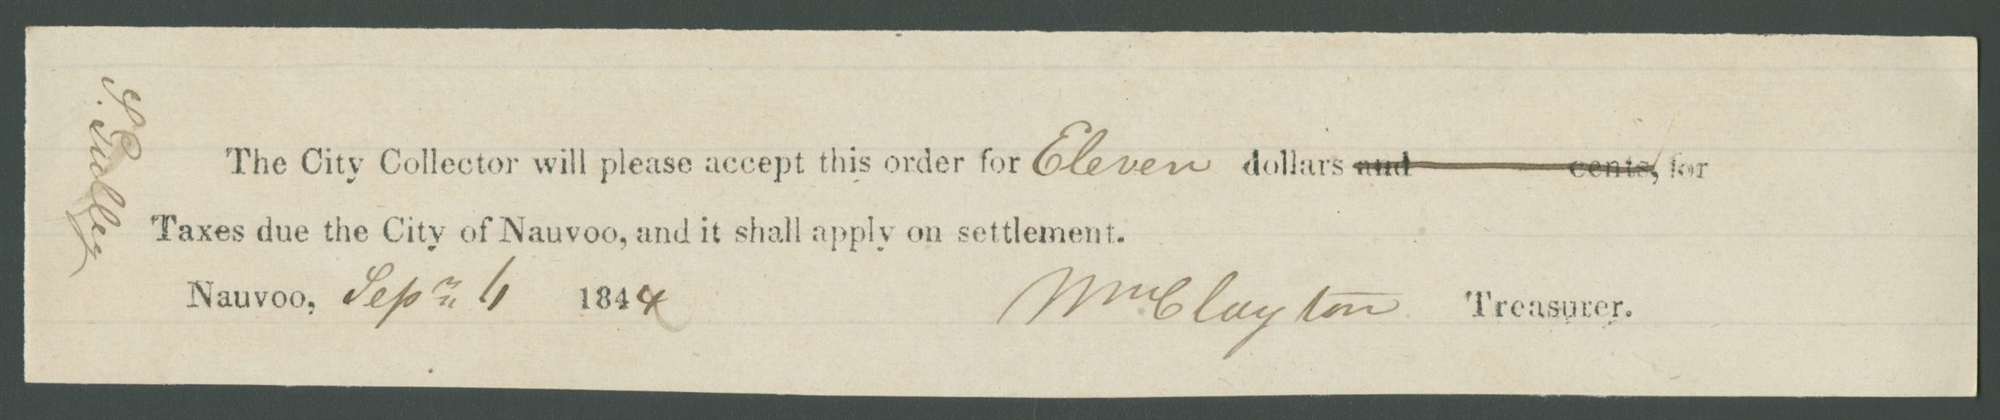 The City Collector will please accept this order for Eleven dollars and cents, for
Taxes due the City of Nauvoo, and it shall apply on settlement.
Nauvoo, Sep 1844 Wm Clayton Treasurer.